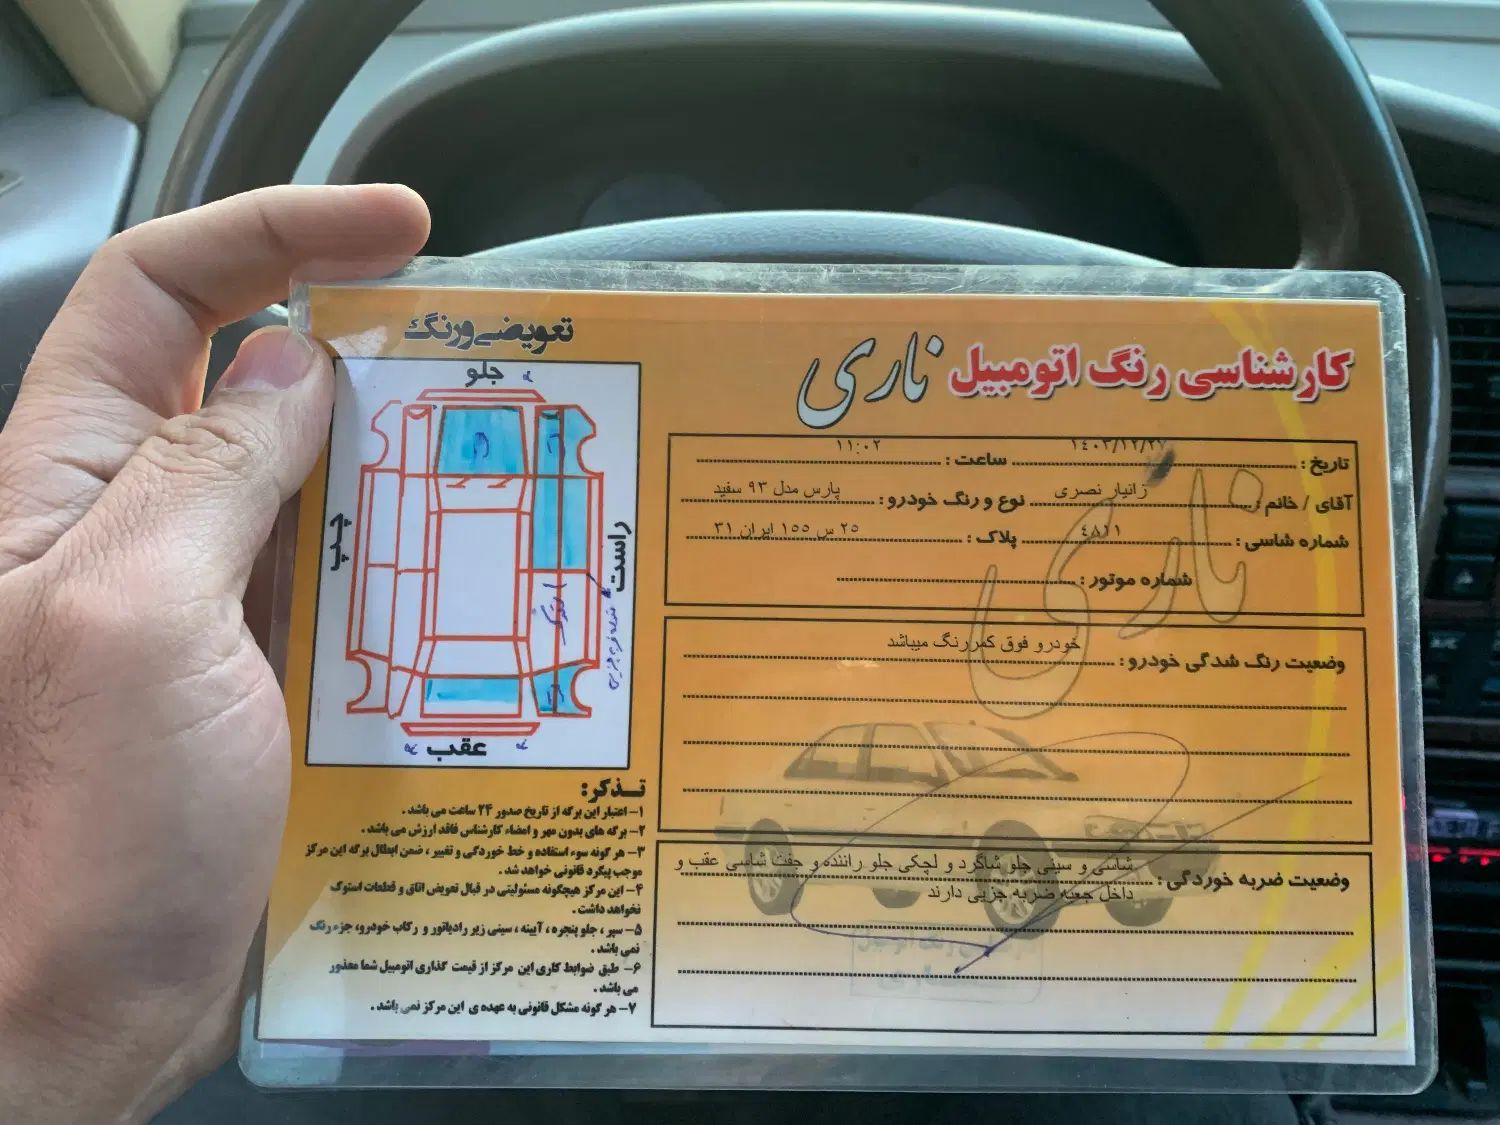 کارشناسی رنگ اتومبیل ناری
تاریخ : ۱٤۰۳/۱۲/۲۷ ساعت : ۱۱:۰۲
آقای / خانم : زانیار نصری نوع و رنگ خودرو : پارس مدل ۹۳ سفید
شماره شاسی : ٤٨١١ پلاک : ۲۵ س ۱۵۵ ایران ۳۱
شماره موتور :
وضعیت رنگ شدگی خودرو : خودرو فوق کمررنگ میباشد
وضعیت ضربه خوردگی : شاسی و سینی جلو شاگرد و لچکی جلو راننده و جفت شاسی عقب و
داخل جعبه ضربه جزیی دارند
ناری
تعویضی و رنگ
جلو
چپ
راست
عقب
تـذکر:
۱- اعتبار این برگه از تاریخ صدور ۲۴ ساعت می باشد .
۲- برگه های بدون مهر و امضاء کارشناس فاقد ارزش می باشد .
۳- هر گونه سوء استفاده و خط خوردگی و تغییر ، ضمن ابطال برگه این مرکز
موجب پیگرد قانونی خواهد شد .
۴- این مرکز هیچگونه مسئولیتی در قبال تعویض اتاق و قطعات استوک
نخواهد داشت .
۵- سپر ، جلو پنجره ، آیینه ، سینی زیر رادیاتور و رکاب خودرو، جزء رنگ
نمی باشد .
۶- طبق ضوابط کاری این مرکز از قیمت گذاری اتومبیل شما معذور
می باشد .
۷- هر گونه مشکل قانونی به عهده ی این مرکز نمی باشد .